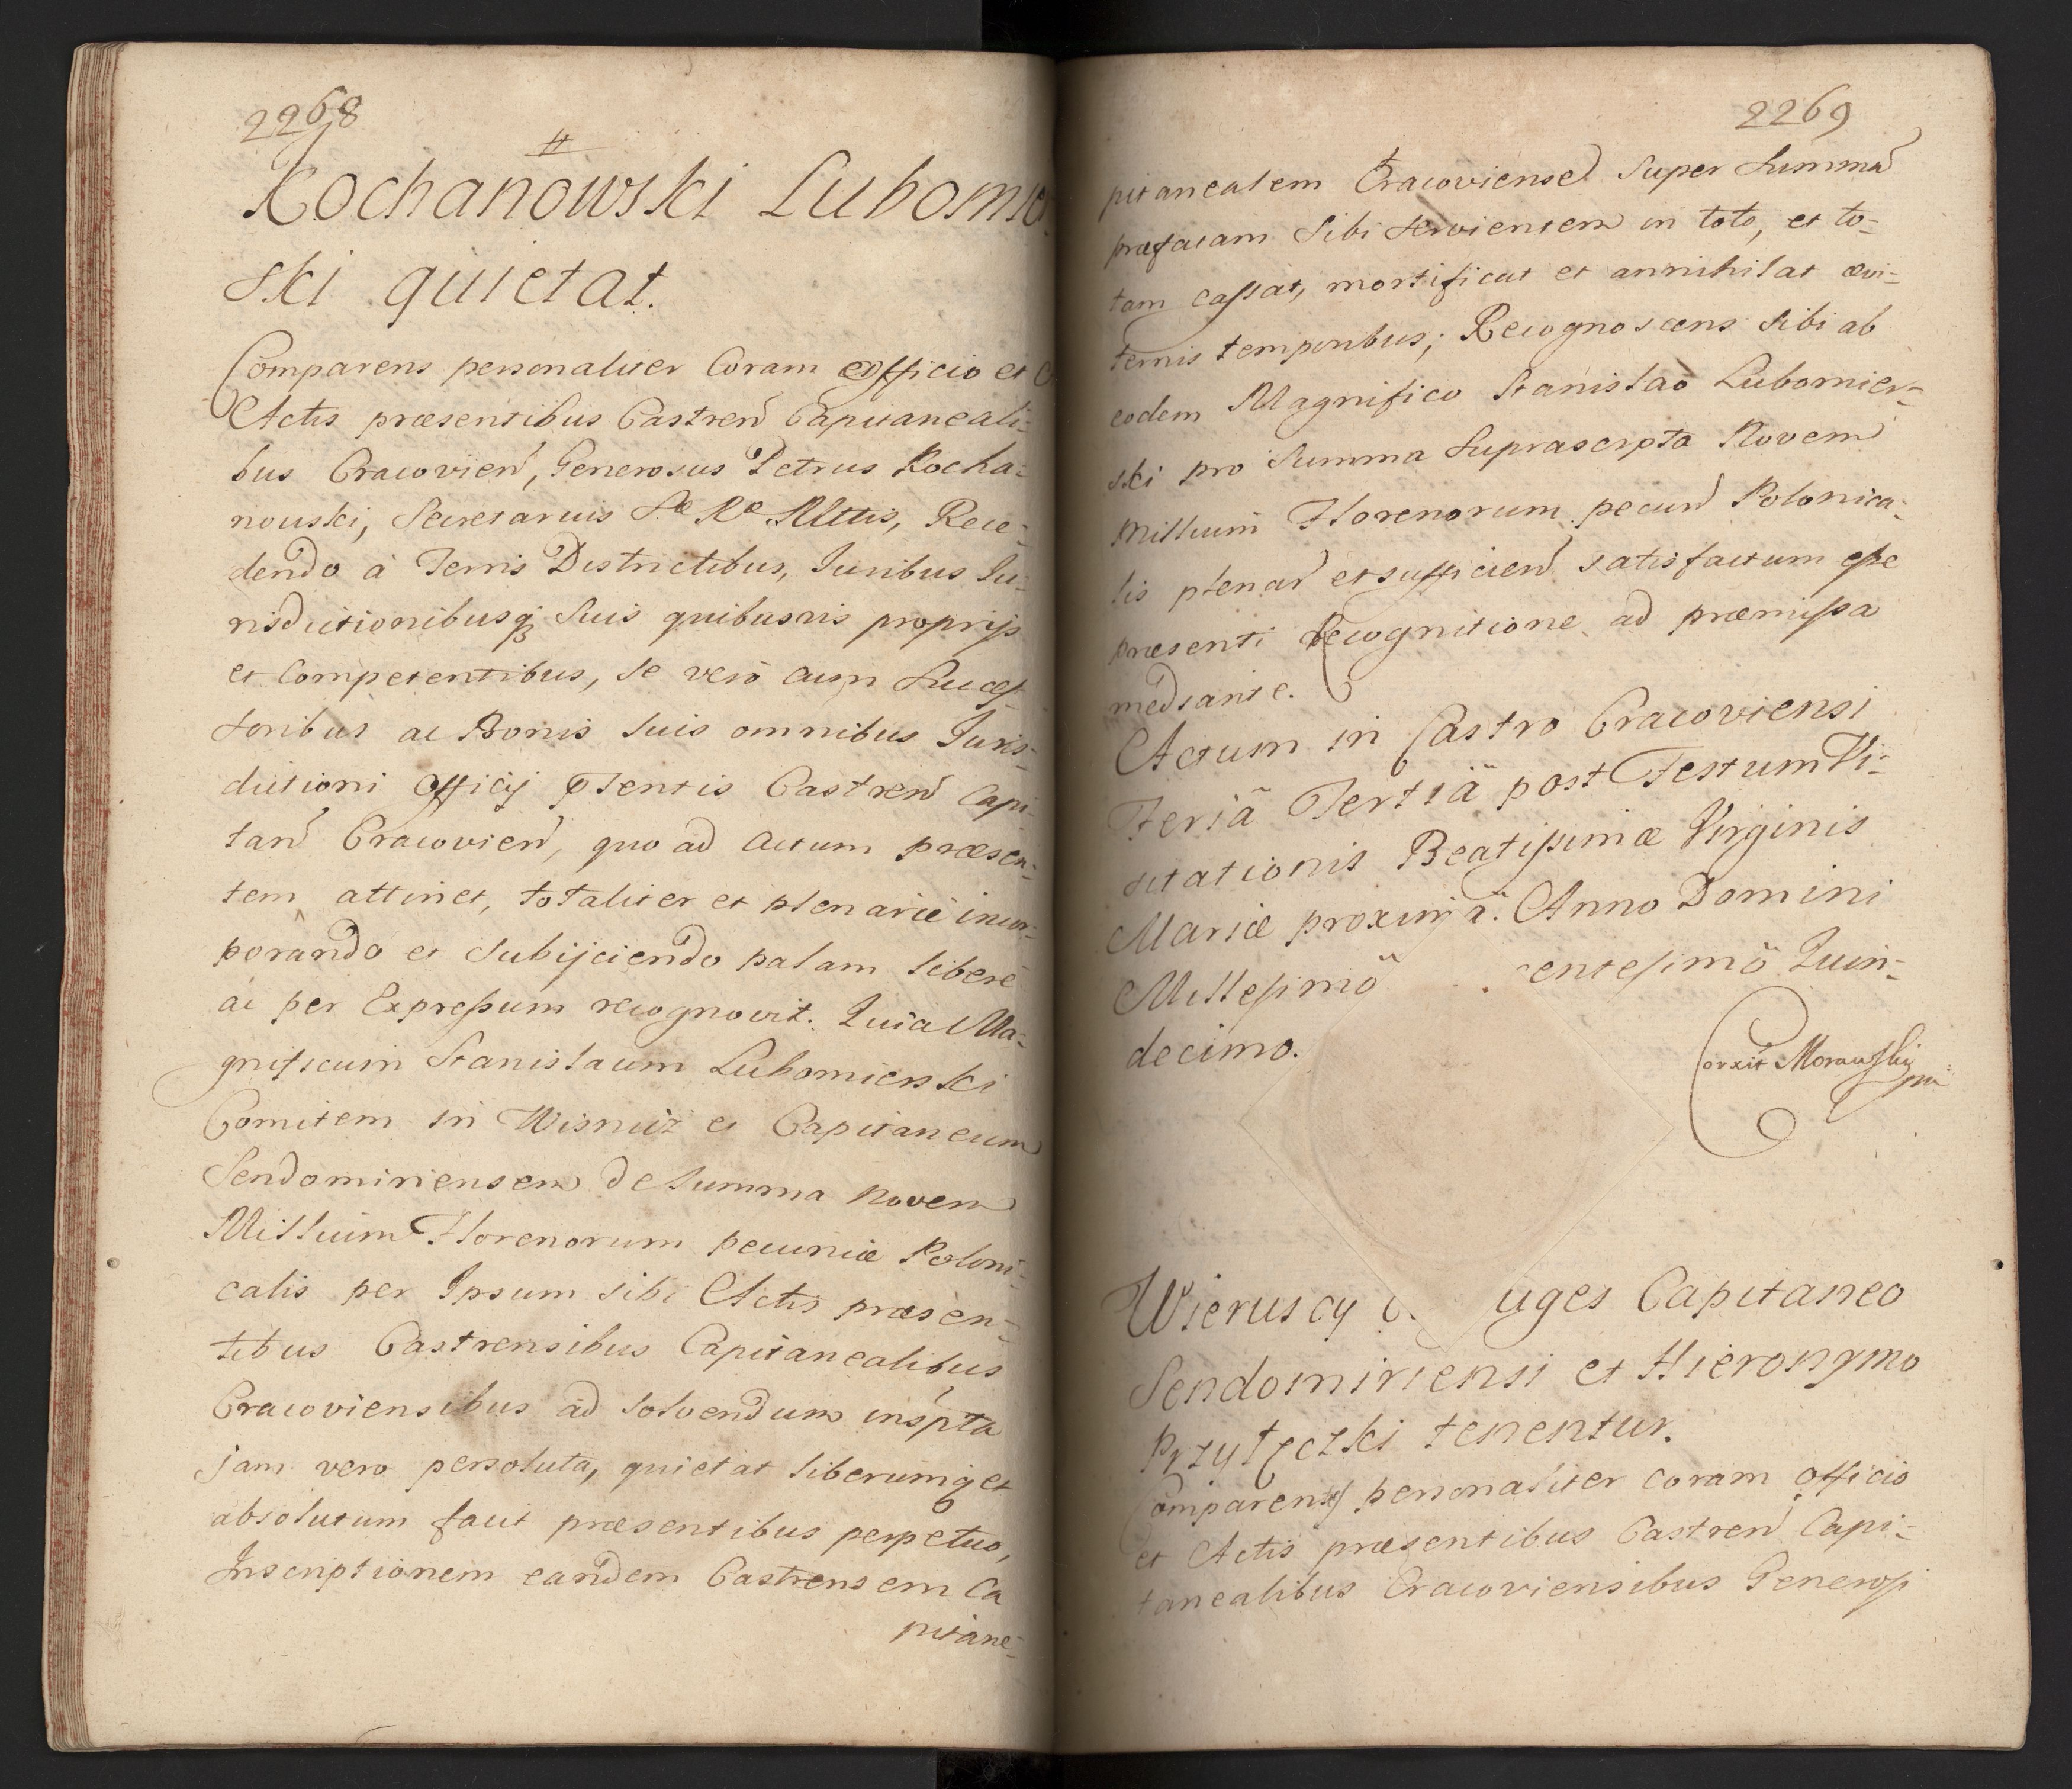 2268
#
Kochanowski Lubomier-
ski quietat.
Comparens personaliter Coram Officio et
Actis præsentibus Castren Capitaneali-
bus Cracovien, Generosus Petrus Kocha-
nouski, Secretarius Sæ Ræ Mttis, Rece-
dendo à Terris Districtibus, Iuribus Iu-
risdictionibusq3 Suis quibusvis proprijs
et Competentibus, se verò cum Succes-
soribus ac Bonis suis omnibus Juris-
dictioni Officij Ptentis Castren Capi-
tan Cracovien, quo ad Actum præsen-
tem attinet, totaliter et plenariè incor-
porando et Subijciendo palam liberè
ac per Expressum recognovit. Quia Ma-
gnificum Stanislaum Lubomierski
Comitem in Wisnicz et Capitaneum
Sendomiriensem de summa Novem
Millium Florenorum pecuniæ Poloni-
calis per Ipsum sibi Actis præsen-
tibus Castrensibus Capitanealibus
Cracoviensibus ad solvendum inspta
jam vero persoluta, quietat liberumq3 et
absolutum facit præsentibus perpetuo,
Inscriptionem eandem Castrensem Ca
pitane-
2269
pitanealem Cracoviensē Super Summa
præfatam Sibi Servientem in toto, et to-
tam cassat, mortificat et annihilat ævi-
ternis temporibus; Recognoscens Sibi ab
eodem Magnifico Stanislao Lubomier-
ski pro Summa Suprascripta Novem
Millium Florenorum pecun Polonica-
lis plenar et sufficien satisfactum esse
præsenti Recognitione ad præmissa
mediante.
Actum in Castro Cracoviensi
Feriâ Tertiâ post Festum Vi-
sitationis Beatissimæ Virginis
Mariæ proximâ. Anno Domini
Millesimo centesimo Quin-
decimo.
Corxit Morawskij
mp
Wieruscy uges Capitaneo
Sendomiriensi et Hieronymo
Przyłęczki tenentur.
Comparentes personaliter coram officio
et Actis præsentibus Castren Capi-
tanealibus Cracoviensibus Generosi